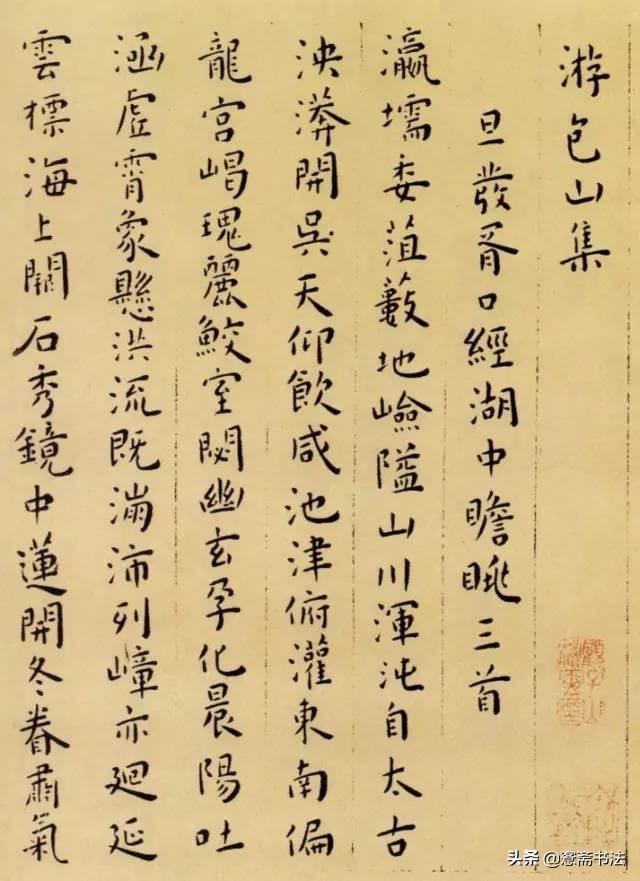 游包山集
旦發胥口經湖中瞻眺三首
瀛壖委菹藪地嶮隘山川渾沌自太古
泱漭開吳天仰飲咸池津俯灌東南偏
龍宮嵑瑰麗鮫室閟幽玄孕化晨陽吐
涵虛霄象懸洪流既滿沛列嶂亦廻延
雲標海上闕石秀鏡中蓮開冬眷肅氣
头条@窓斋书法